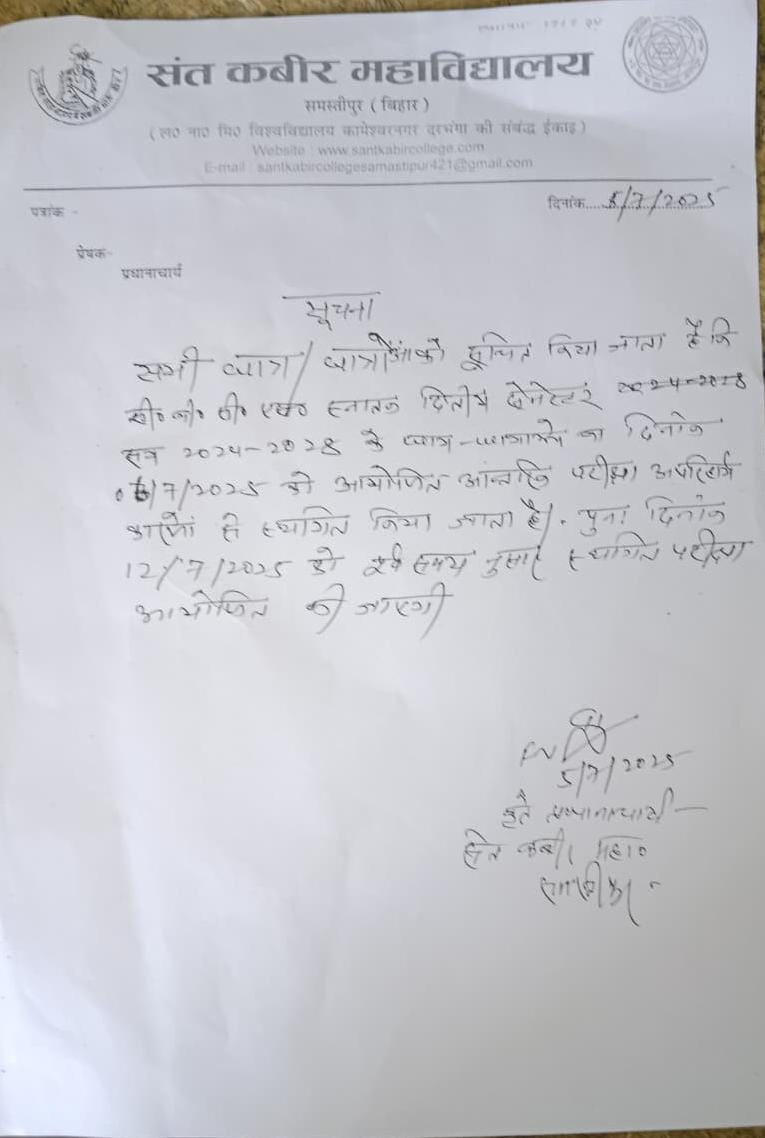 संत कबीर महाविद्यालय
समस्तीपुर ( बिहार )
( ल० ना० मि० विश्वविद्यालय कामेश्वरनगर दरभंगा की संबंद्ध ईकाइ )
Website : www.santkabircollege.com
E-mail : santkabircollegesamastipur421@gmail.com
पत्रांक - दिनांक.....5/7/2025
प्रेषक-
प्रधानाचार्य
सूचना
सभी छात्र/छात्राओं को सूचित किया जाता है कि
सी० बी० सी० एस० स्नातक द्वितीय सेमेस्टर 2024-2028
सत्र 2024-2028 के छात्र-छात्राओं का दिनांक
06/7/2025 को आयोजित आंन्तरिक परीक्षा अपरिहार्य
कारणों से स्थगित किया जाता है। पुनः दिनांक
12/7/2025 को पूर्व समय नुसार स्थगित परीक्षा
आयोजित की जाएगी
5/7/2025
कृते प्रधानाचार्य
संत कबीर महा०
समस्तीपुर